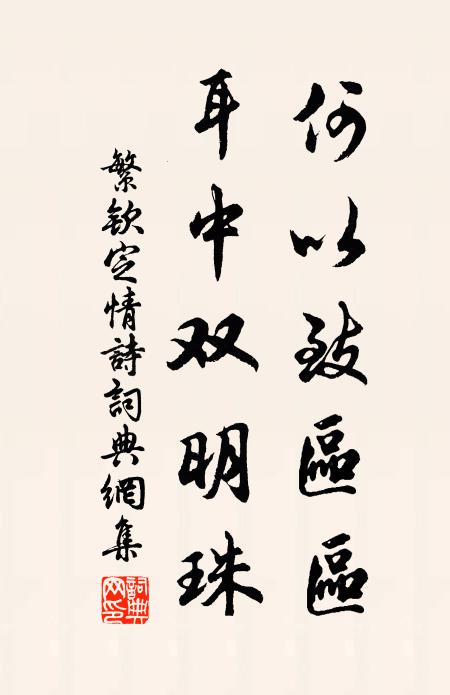 何以致區區
耳中双明珠
繁欽定情詩詞典網集
詞典网印